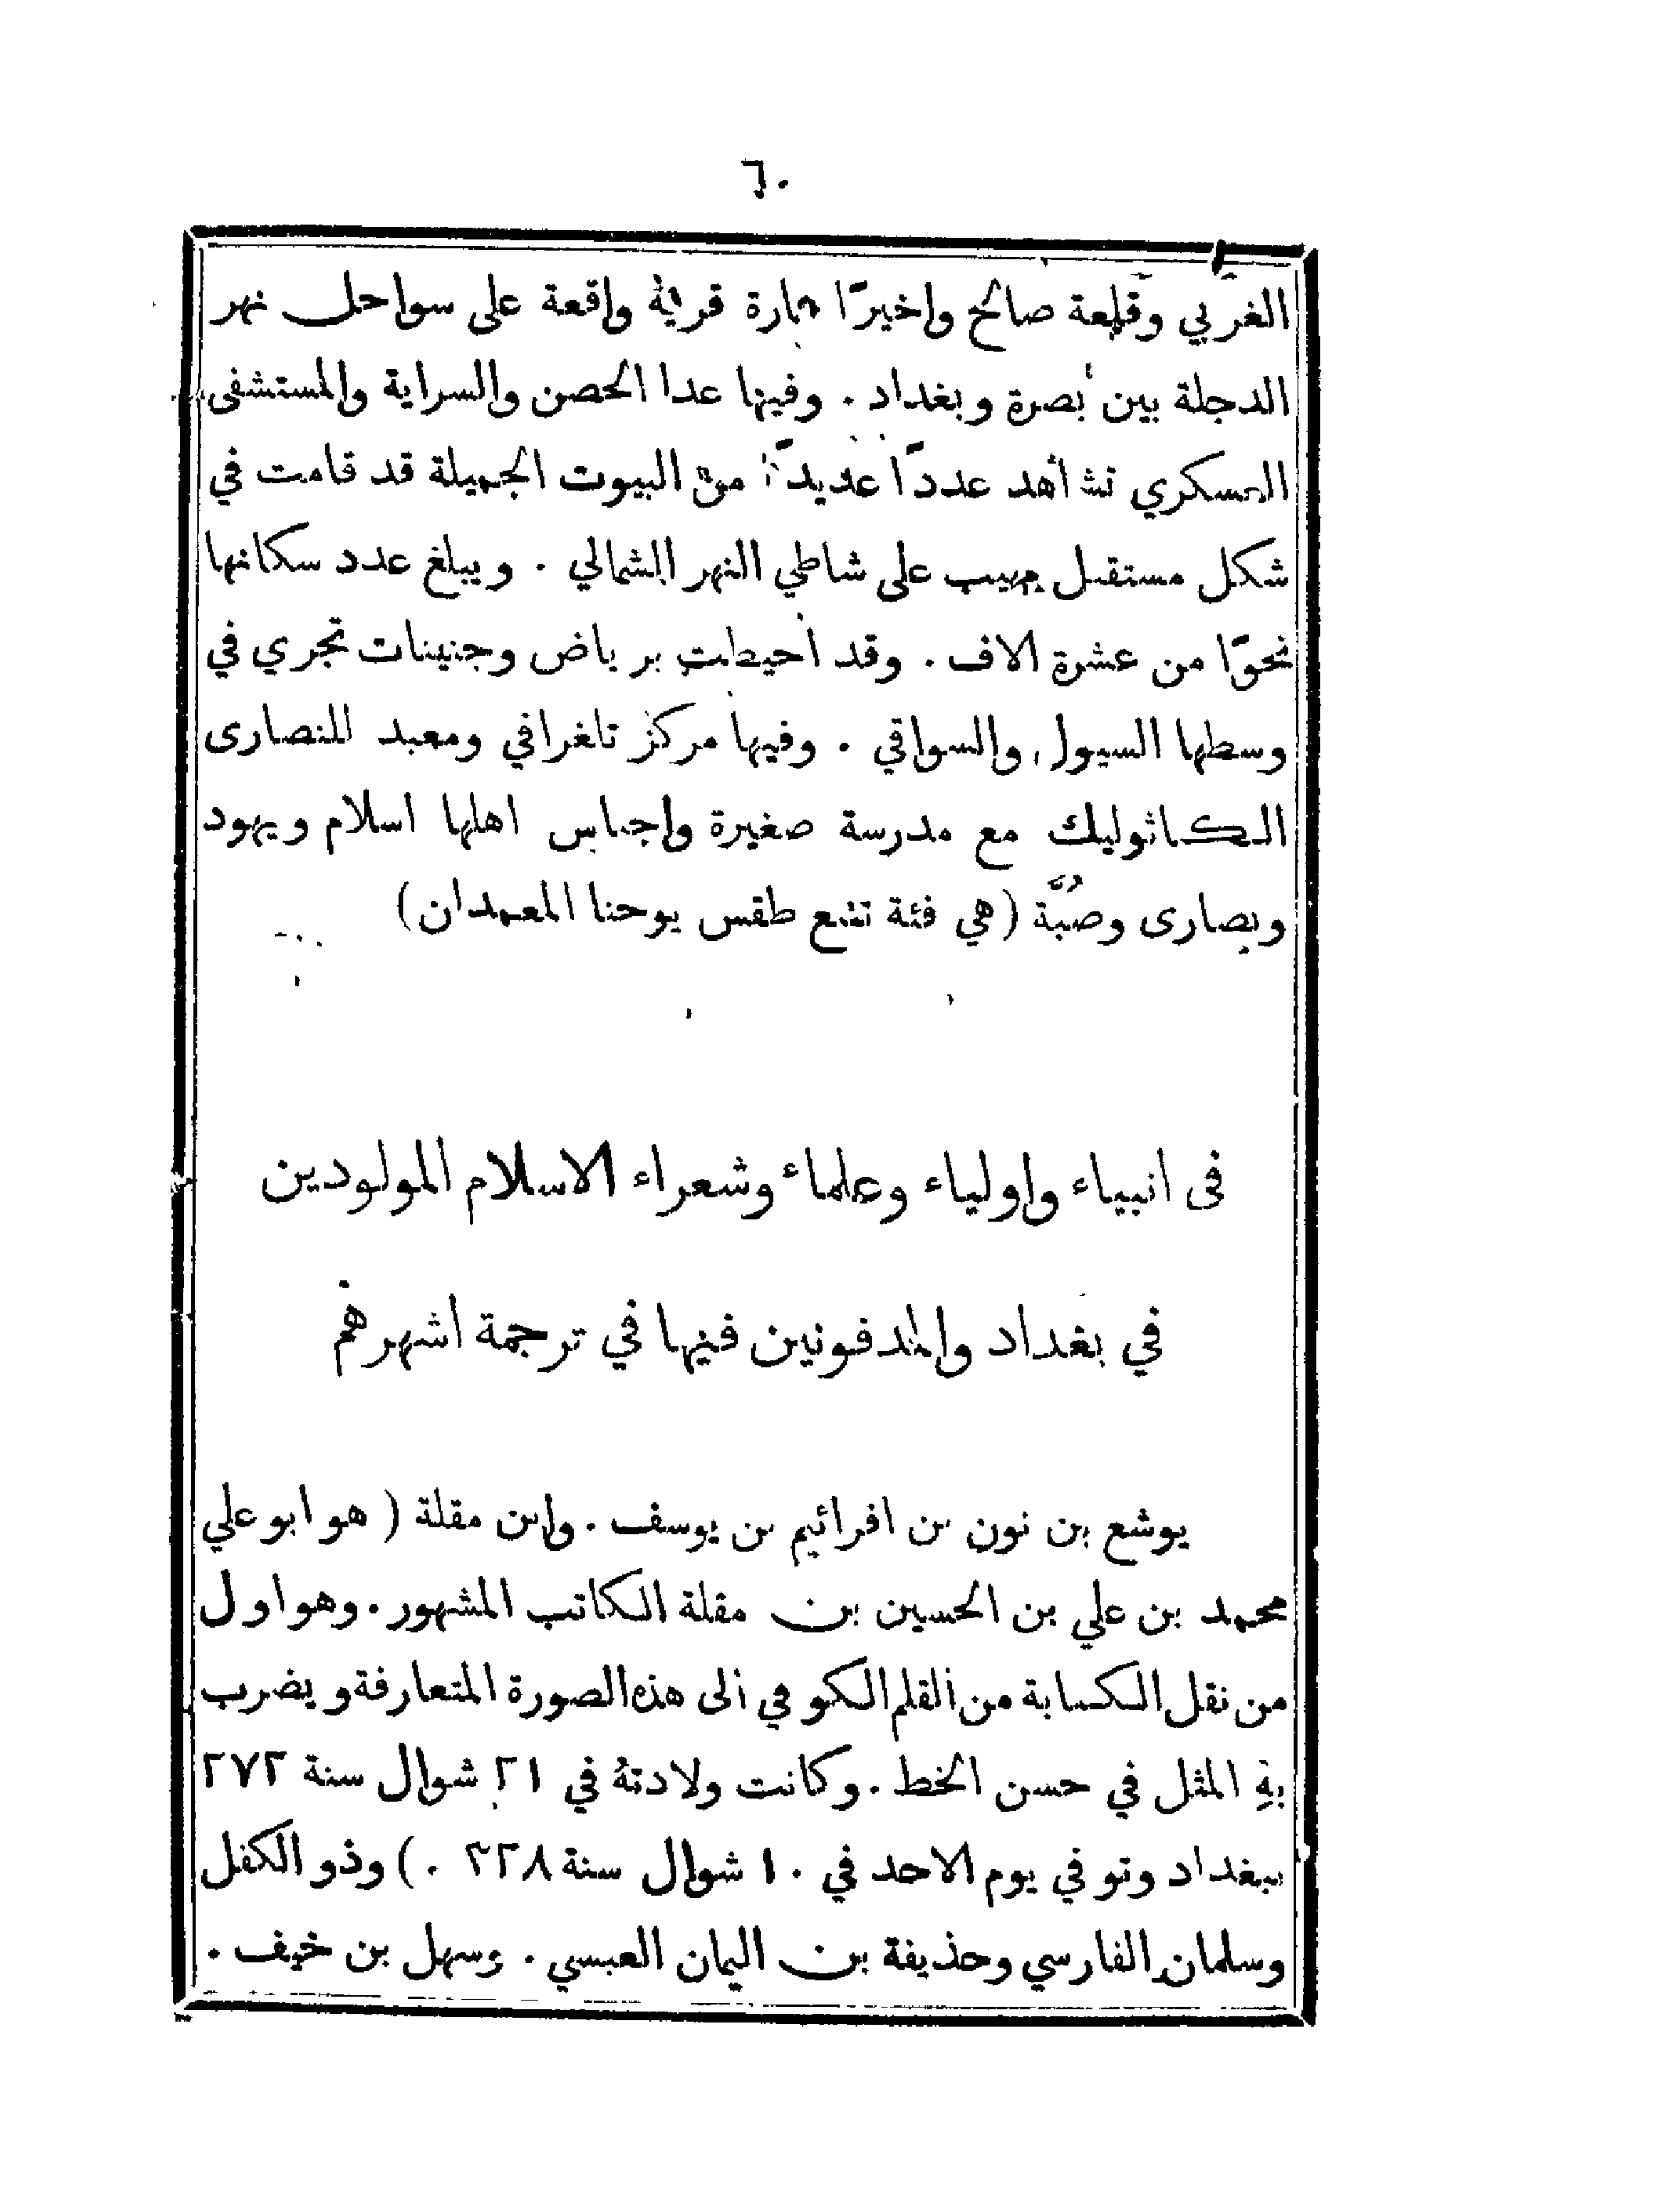 ٦٠
الغربي وقلعة صالح واخيرًا عمارة قرية واقعة على سواحل نهر
الدجلة بين بصرة وبغداد . وفيها عدا الحصن والسراية والمستشفى
العسكري تشاهد عددًا عديدًا من البيوت الجميلة قد قامت في
شكل مستقبل مهيب على شاطي النهر الشمالي . ويبلغ عدد سكانها
نحوًا من عشرة الاف . وقد احيطت برياض وجنينات تجري في
وسطها السيول والسواقي . وفيها مركز تلغرافي ومعبد للنصارى
الكاثوليك مع مدرسة صغيرة واجناس اهلها اسلام ويهود
ونصارى وصُبَّة (هي فئة تتبع طقس يوحنا المعمدان)
فى انبياء واولياء وعلماء وشعراء الاسلام المولودين
في بغداد والمدفونين فيها في ترجمة اشهرهم
يوشع بن نون بن افرائيم بن يوسف . وابن مقلة ( هو ابو علي
محمد بن علي بن الحسين بن مقلة الكاتب المشهور . وهو اول
من نقل الكتابة من القلم الكوفي الى هذه الصورة المتعارفة ويضرب
بهِ المثل في حسن الخط . وكانت ولادتهُ في ٢١ شوال سنة ٢٧٢
ببغداد وتوفي يوم الاحد في ١٠ شوال سنة ٣٢٨ .) وذو الكفل
وسلمان الفارسي وحذيفة بن اليمان العبسي . وسهل بن حنيف .